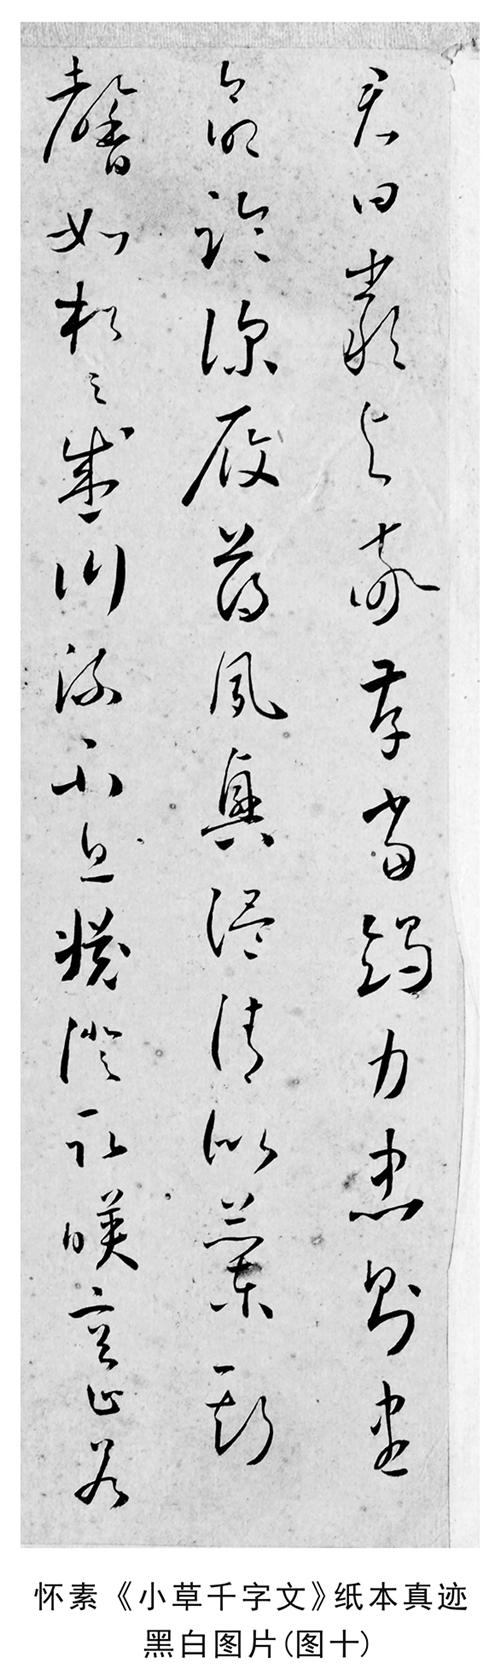 君曰嚴與敬孝當竭力忠則盡
命臨深履薄夙興溫清似蘭斯
馨如松之盛川流不息淵澄取映容止若
怀素《小草千字文》纸本真迹
黑白图片(图十)